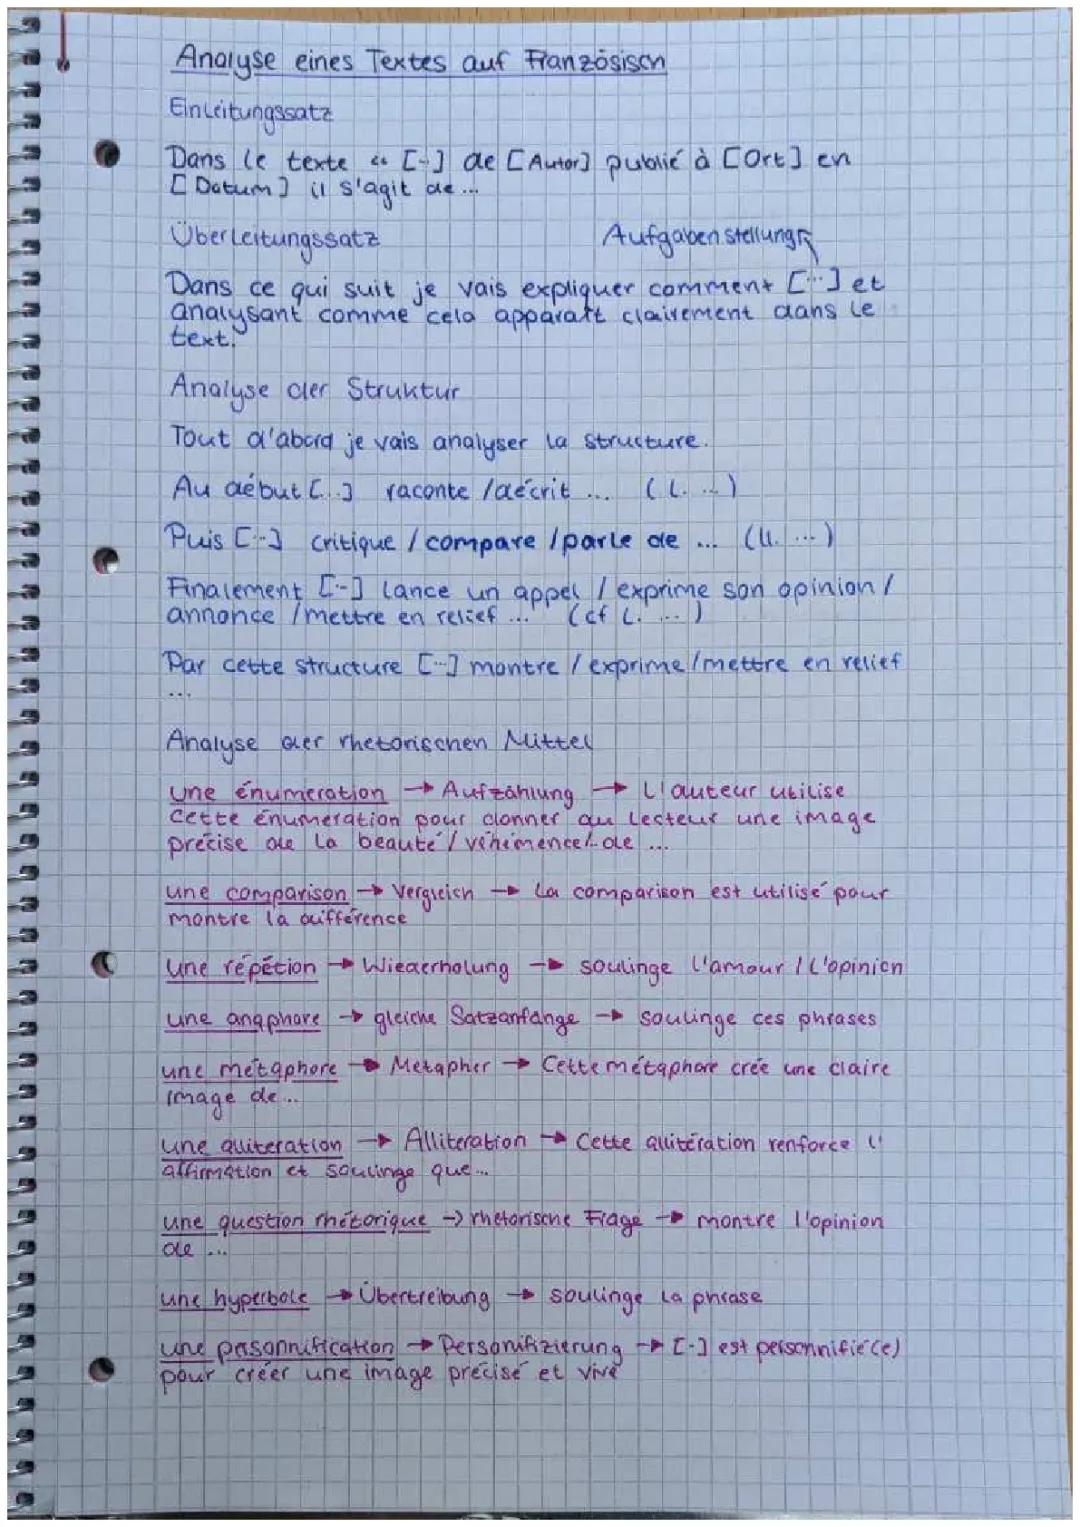 Analyse eines Textes auf Französisch
Einleitungssatz
Dans le texte " [...] de [Autor] publié à [Ort] en
[Datum] il s'agit de ...
Überleitungssatz Aufgabenstellung
Dans ce qui suit je vais expliquer comment [...] et
analysant comme cela apparaît clairement dans le
text.
Analyse der Struktur
Tout d'abord je vais analyser la structure.
Au début [...] raconte / décrit ... (l. ...)
Puis [...] critique / compare / parle de ... (ll. ...)
Finalement [...] lance un appel / exprime son opinion /
annonce / mettre en relief ... (cf l. ...)
Par cette structure [...] montre / exprime / mettre en relief
...
Analyse der rhetorischen Mittel
une énumeration → Aufzählung → L'auteur utilise
cette énumeration pour donner au lecteur une image
précise de la beauté / véhémence/ de ...
une comparison → Vergleich → La comparison est utilisé pour
montre la différence
une répétion → Wiederholung → soulinge l'amour / l'opinion
une anaphore → gleiche Satzanfänge → soulinge ces phrases
une métaphore → Metapher → Cette métaphore crée une claire
image de ...
une alliteration → Alliteration → Cette allitération renforce l'
affirmation et soulinge que ...
une question rhétorique → rhetorische Frage → montre l'opinion
de ...
une hyperbole → Übertreibung → soulinge la phrase
une personnification → Personifizierung → [...] est personnifié(e)
pour créer une image précisé et vive